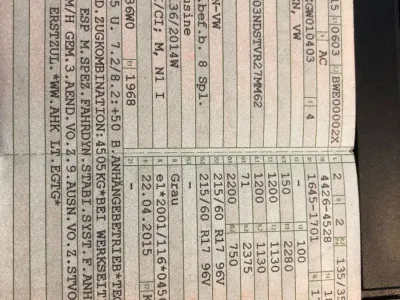 15 0603 BWE00002X
AC
GW010403 4
EN, VW
03NDSTVR27MM62
N-VW
.bef.b. 8 Spl.
usine
36/2014W
/CI; M, N1 I
36W0 1968
5 U. 7.2/8.2:+50 B.ANHÄNGEBETRIEB*TE
D.ZUGKOMBINATION:4505KG*BEI WERKSEIT
ESP M.SPEZ.FAHRDYN.STABI.SYST.F.ANH
M/H GEM.3.AEND.VO.Z.9.AUSN.VO.Z:STVO
ERSTZUL.*WW.AHK LA.EGTG*
2 2 135/3
4426-4528
1645-1701
100
150 2280
1200 1130
1200 1130
71 2375
2200 750
215/60 R17 96V
215/60 R17 96V
Grau
e1*2001/116*045
22.04.2015 K